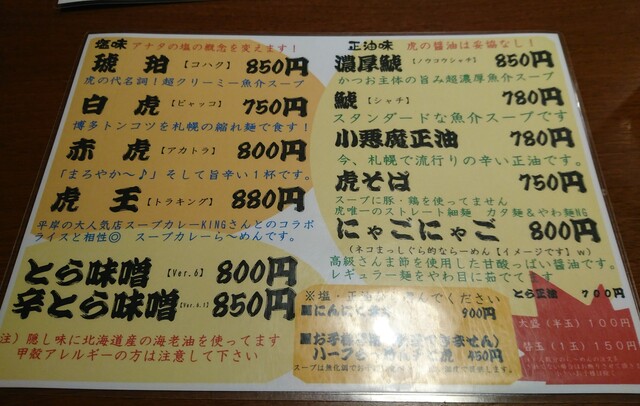 塩味 アナタの塩の概念を変えます！
琥珀【コハク】 850円
虎の代名詞！超クリーミー魚介スープ
白虎【ビャッコ】 750円
博多トンコツを札幌の縮れ麺で食す！
赤虎【アカトラ】 800円
「まろやか～♪」そして旨辛い１杯です。
虎王【トラキング】 880円
平岸の大人気店スープカレーKINGさんとのコラボ
ライスと相性◎ スープカレーら～めんです。
とら味噌【Ver.6】 800円
辛とら味噌 850円
注）隠し味に北海道産の海老油を使ってます
甲殻アレルギーの方は注意して下さい
正油味 虎の醤油は妥協なし！
濃厚鯱【ノウコウシャチ】 850円
かつお主体の旨み超濃厚魚介スープ
鯱【シャチ】 780円
スタンダードな魚介スープです
小悪魔正油 780円
今、札幌で流行りの辛い正油です。
虎そば 750円
スープに豚・鶏を使ってません
虎唯一のストレート細麺 カタ麺＆やわ麺NG
にゃごにゃご 800円
（ネコまっしぐら的ならーめん【イメージです】w）
高級さんま節を使用した甘酸っぱい醤油です。
レギュラー麺をやわ目に茹でてます
とら正油 700円
※塩・正油 んでください
にんにく 900円
ません）
450円
大盛（半玉）100円
替玉（1玉）150円